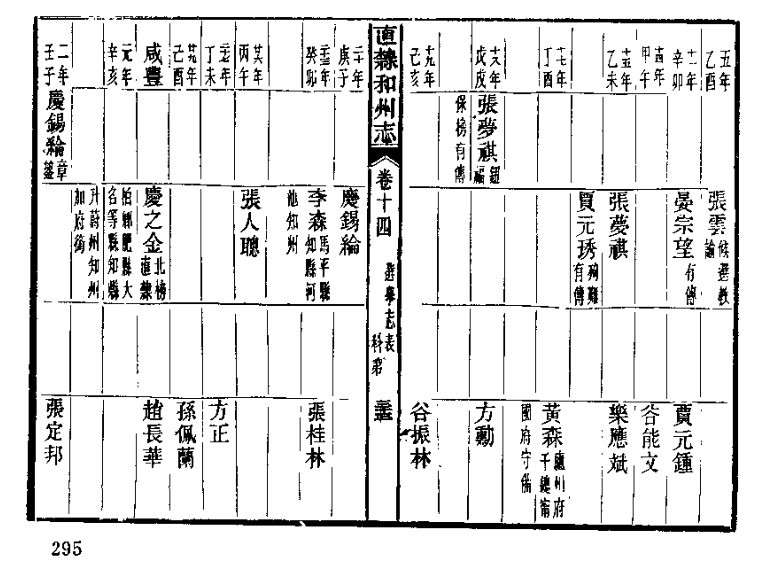 五年乙酉
張雲候選教諭
十一年辛卯
晏宗望有傳
賈元鍾
十四年甲午
谷能文
十五年乙未
張夢祺
樂應斌
賈元琇殉難有傳
十七年丁酉
黃森廬州府千總甯
國府守備
十八年戊戌
張夢祺鈕福
保榜有傳
方勳
十九年己亥
谷振林
直隸和州志
卷十四
選舉志表
科第
二十年庚子
慶錫綸
二十三年癸卯
李森馬平縣知縣河
池知州
張桂林
二十六年丙午
張人聰
二十七年丁未
方正
二十九年己酉
孫佩蘭
咸豐
元年辛亥
慶之金北榜直隸
柏鄉肥鄉大名等縣知縣
升蔚州知州加府銜
趙長華
二年壬子
慶錫綸章鋆
張定邦
295